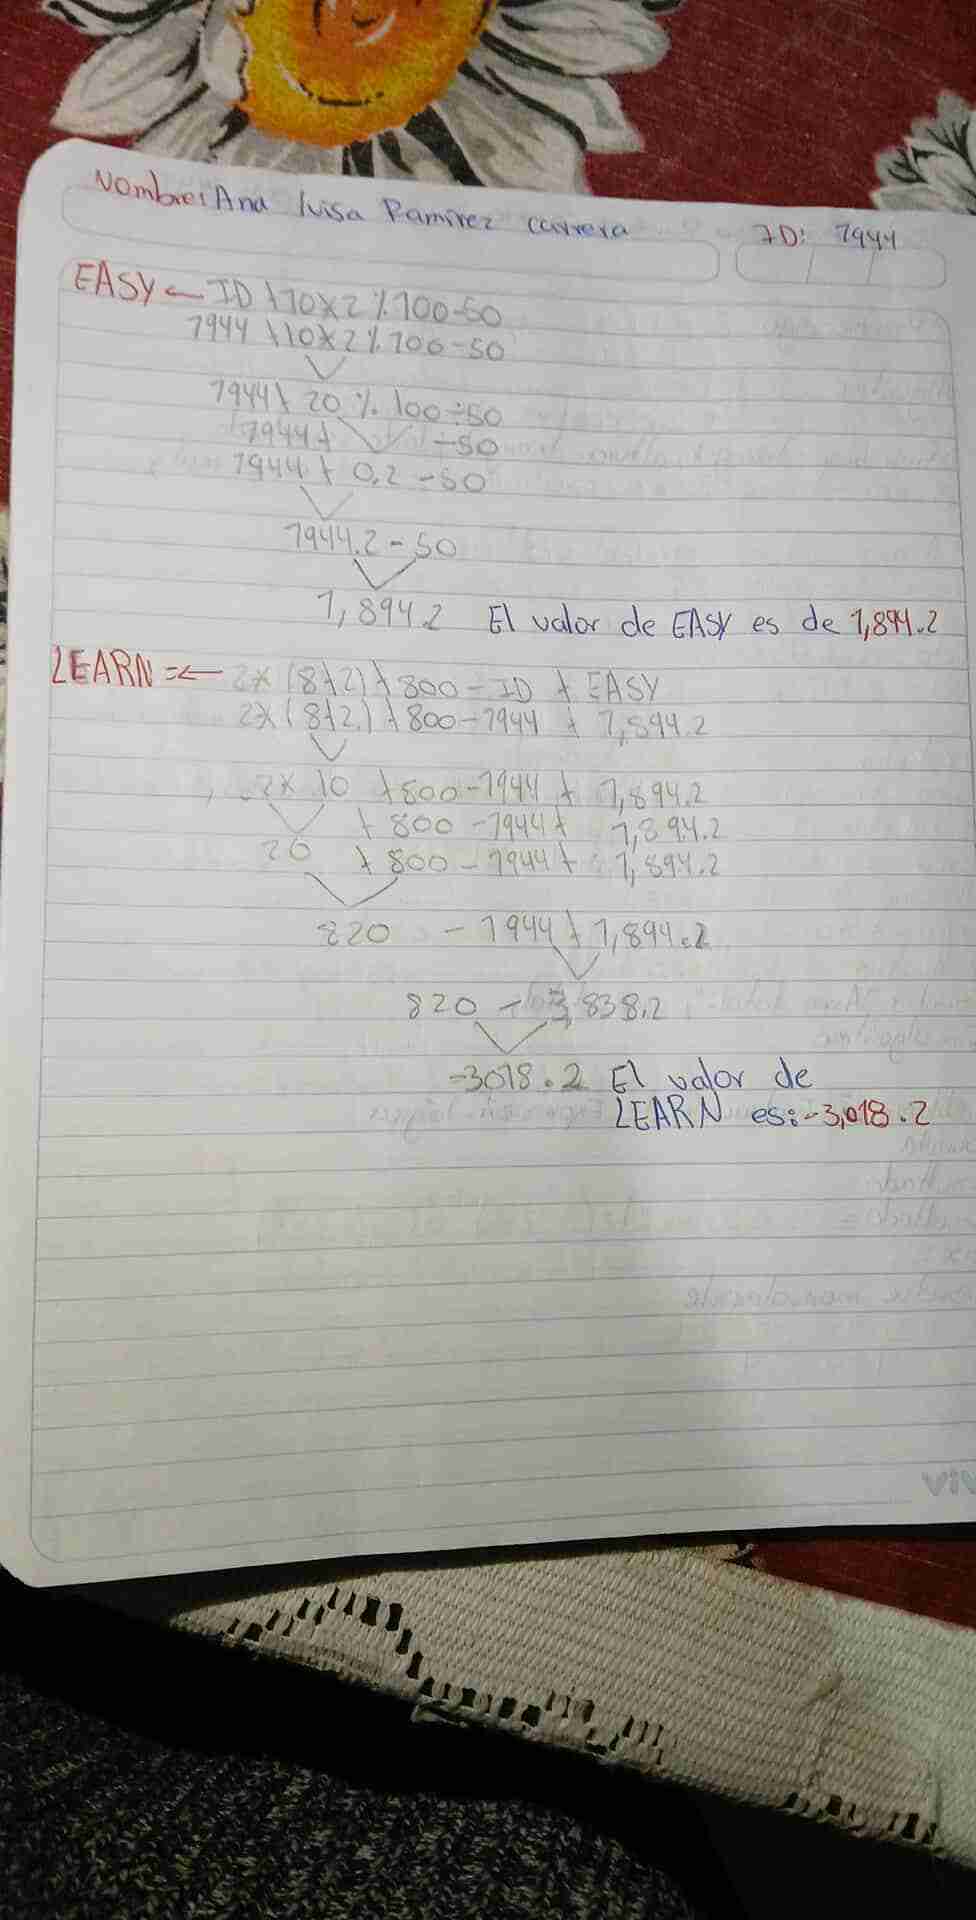 Nombre: Ana luisa Ramírez carrera ID: 1944
EASY ← ID + 10 x 2 % 100 - 50
1944 + 10 x 2 % 100 - 50
1944 + 20 % 100 ÷ 50
1944 + - 50
1944 + 0.2 - 50
1944.2 - 50
1,894.2 El valor de EASY es de 1,894.2
LEARN =← 2 x (8+2) + 800 - ID + EASY
2 x (8+2) + 800 - 1944 + 1,894.2
2 x 10 + 800 - 1944 + 1,894.2
+ 800 - 1944 + 1,894.2
20 + 800 - 1944 + 1,894.2
820 - 1944 + 1,894.2
820 - 3,838.2
-3018.2 El valor de
LEARN es: -3,018.2